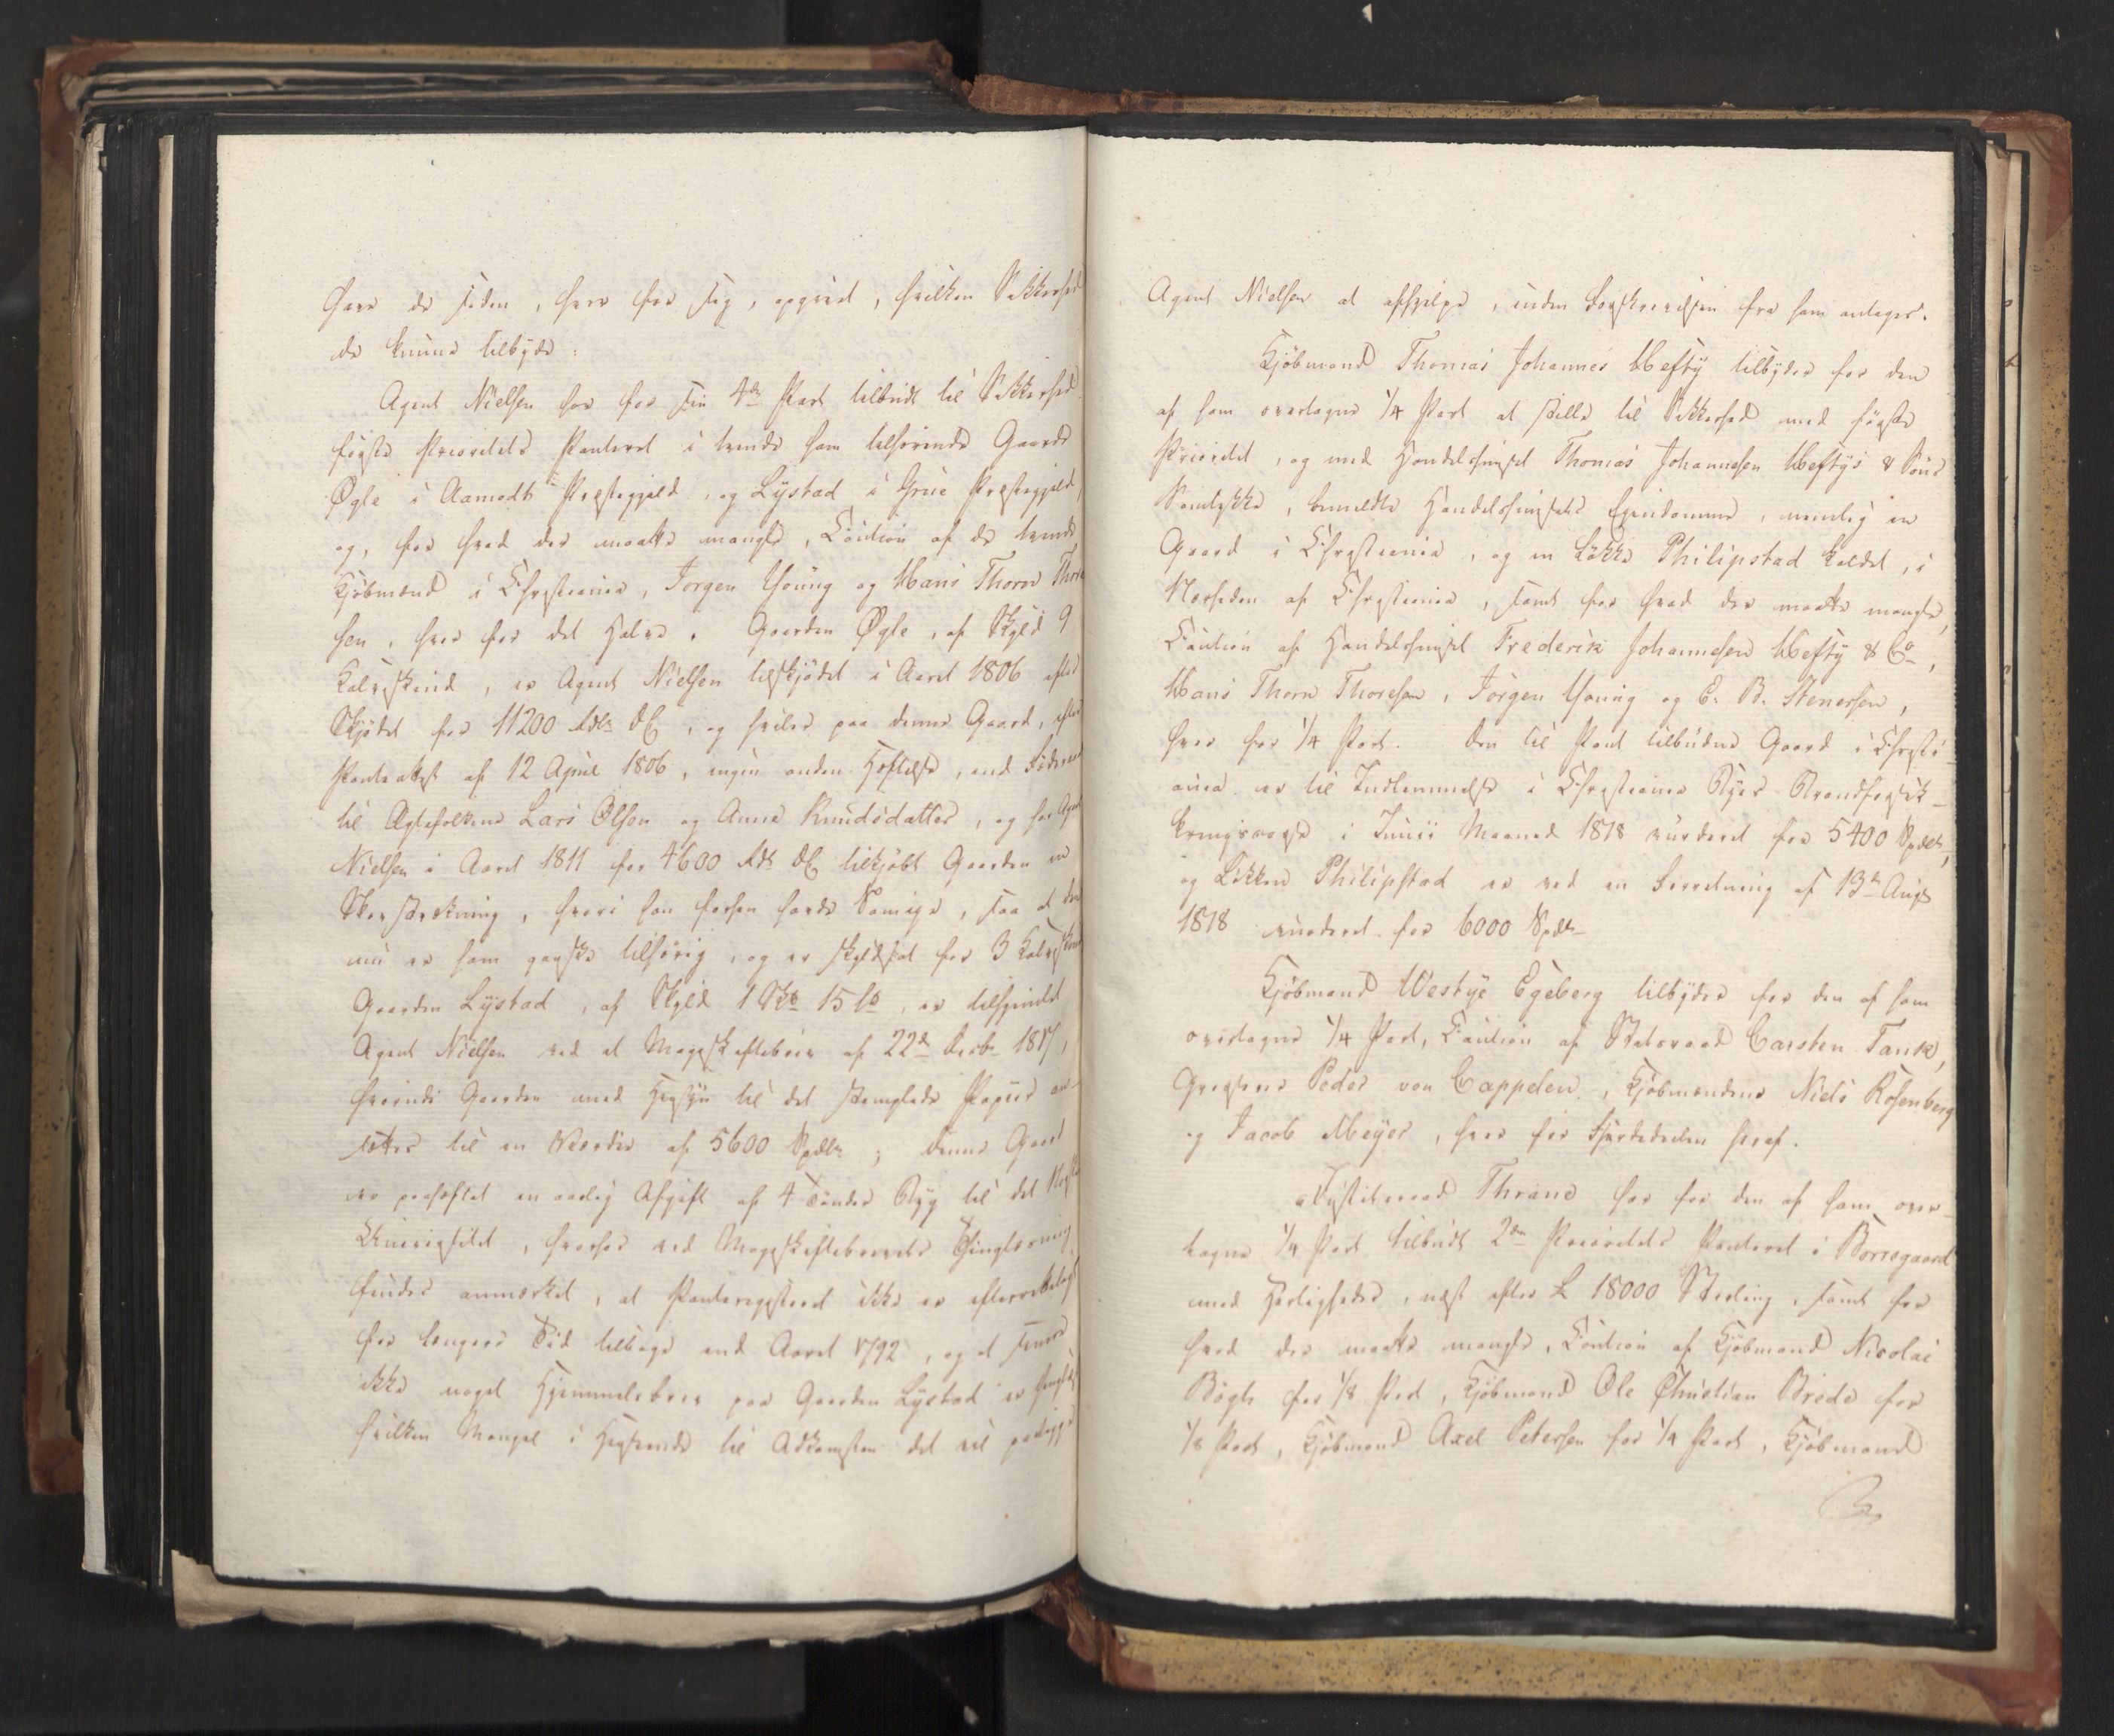 have de siden, hver for sig, opgivet, hvilken Sikkerhed
de kunne tilbyde:
Agent Nielsen har for sin 4de Part tilbudt til Sikkerhed
første Prioritets Panteret i tvende ham tilhørende Gaarde
Øgle i Aamodts Præstegjeld, og Lystad i Grue Præstegjeld,
og, for hvad der maatte mangle, Caution af de tvende
Kjøbmænd i Christiania, Jørgen Young og Hans Thorn Thore
sen, hver for det Halve. Gaarden Øgle, af Skyld 9
Kalveskind, er Agent Nielsen tilskjødet i Aaret 1806 efter
Skjødet for 11200 Rdlr DC, og hviler paa denne Gaard, efter
Panteattest af 12 April 1806, ingen anden Hæftelse, end Føderaad
til Ægtefolkene Lars Olsen og Anne Knudsdatter, og har Agent
Nielsen i Aaret 1811 for 4600 Rdr DC tilkjøbt Gaarden en
Skovstrækning, hvori han forhen havde Sameje, saa at den
nu er ham ganske tilhørig, og er skyldsat for 3 Kalveskind
Gaarden Lystad, af Skyld 1 15, er tilhjemlet
Agent Nielsen ved et Mageskiftebrev af 22de Decbr 1817,
hvorudi Gaarden med Hensyn til det stemplede Papiir an
sættes til en Værdie af 5600 Spdlr; denne Gaard
er paaheftet en aarlig Afgift af 4 Tønder Byg til det Norske
Universitet, hvorhos ved Mageskiftebrevets Thinglæsning
findes anmærket, at Panteregisteret ikke er efterseet
for længere Tid tilbage end Aaret 1792, og at siden
ikke noget Hjemmelsbrev paa Gaarden Lystad er thinglæst
hvilken Mangel i Henseende til Adkomsten det vil paaligge
Agent Nielsen at afhjelpe, inden Forskrivelsen fra ham antages.
Kjøbmand Thomas Johannes Hefty tilbyder for den
af ham overtagne 1/4 Part at stille til Sikkerhed med første
Prioritet, og med Handelshuset Thomas Johannesen Heftys & Søns
Samtykke, bemeldte Handelshuses Ejendomme, nemlig en
Gaard i Christiania, og en Løkke Philipstad kaldet, i
Nærheden af Christiania, samt for hvad der maatte mangle,
Caution af Handelshuset Frederik Johannesen Hefty & Co,
Hans Thorn Thoresen, Jørgen Young og C. B. Stenersen,
hver for 1/4 Part. Den til Pant tilbudne Gaard i Christi-
ania er til Indlemmelse i Christiania Byes Brandforsik-
kringsvæsen i Junii Maaned 1818 vurderet for 5400 Spdlr,
og Løkken Philipstad er ved en Forretning af 13de Aug
1818 vurderet for 6000 Spdlr
Kjøbmand Westye Egeberg tilbyder for den af ham
overtagne 1/4 Part, Caution af Statsraad Carsten Tank,
Peder von Cappelen, Kjøbmændene Niels Rosenberg
og Jacob Meyer, hver for Fjerdedelen heraf.
Justitsraad Thrane har for den af ham over-
tagne 1/4 Part tilbudt 2den Prioritets Panteret i Borregaard
med Herligheder, næst efter L 18000 Sterling, samt for
hvad der maatte mangle, Caution af Kjøbmand Nicolai
Bøgh for 1/8 Part, Kjøbmand Ole Christian Brede for
1/8 Part, Kjøbmand Axel Petersen for 1/4 Part, Kjøbmand